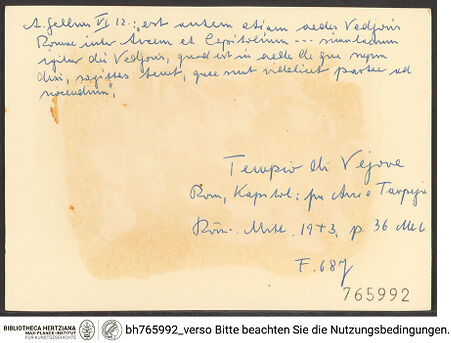 A. Gellius VI 12.: est autem etiam aedes Vedjovis
Romae inter Arcem et Capitolium --- simulacrum
igitur dei Vedjovis, quod est in aede de qua supra
dixi, sagittas tenet, quae sunt videlicet partae ad
nocendum".
Tempio di Vejove
Rom, Kapitol: fra Arx e Tarpeja
Röm. Mitt. 1943, p. 36
F. 687
765992
BIBLIOTHECA HERTZIANA
MAX-PLANCK-INSTITUT
FÜR KUNSTGESCHICHTE
bh765992_verso Bitte beachten Sie die Nutzungsbedingungen.